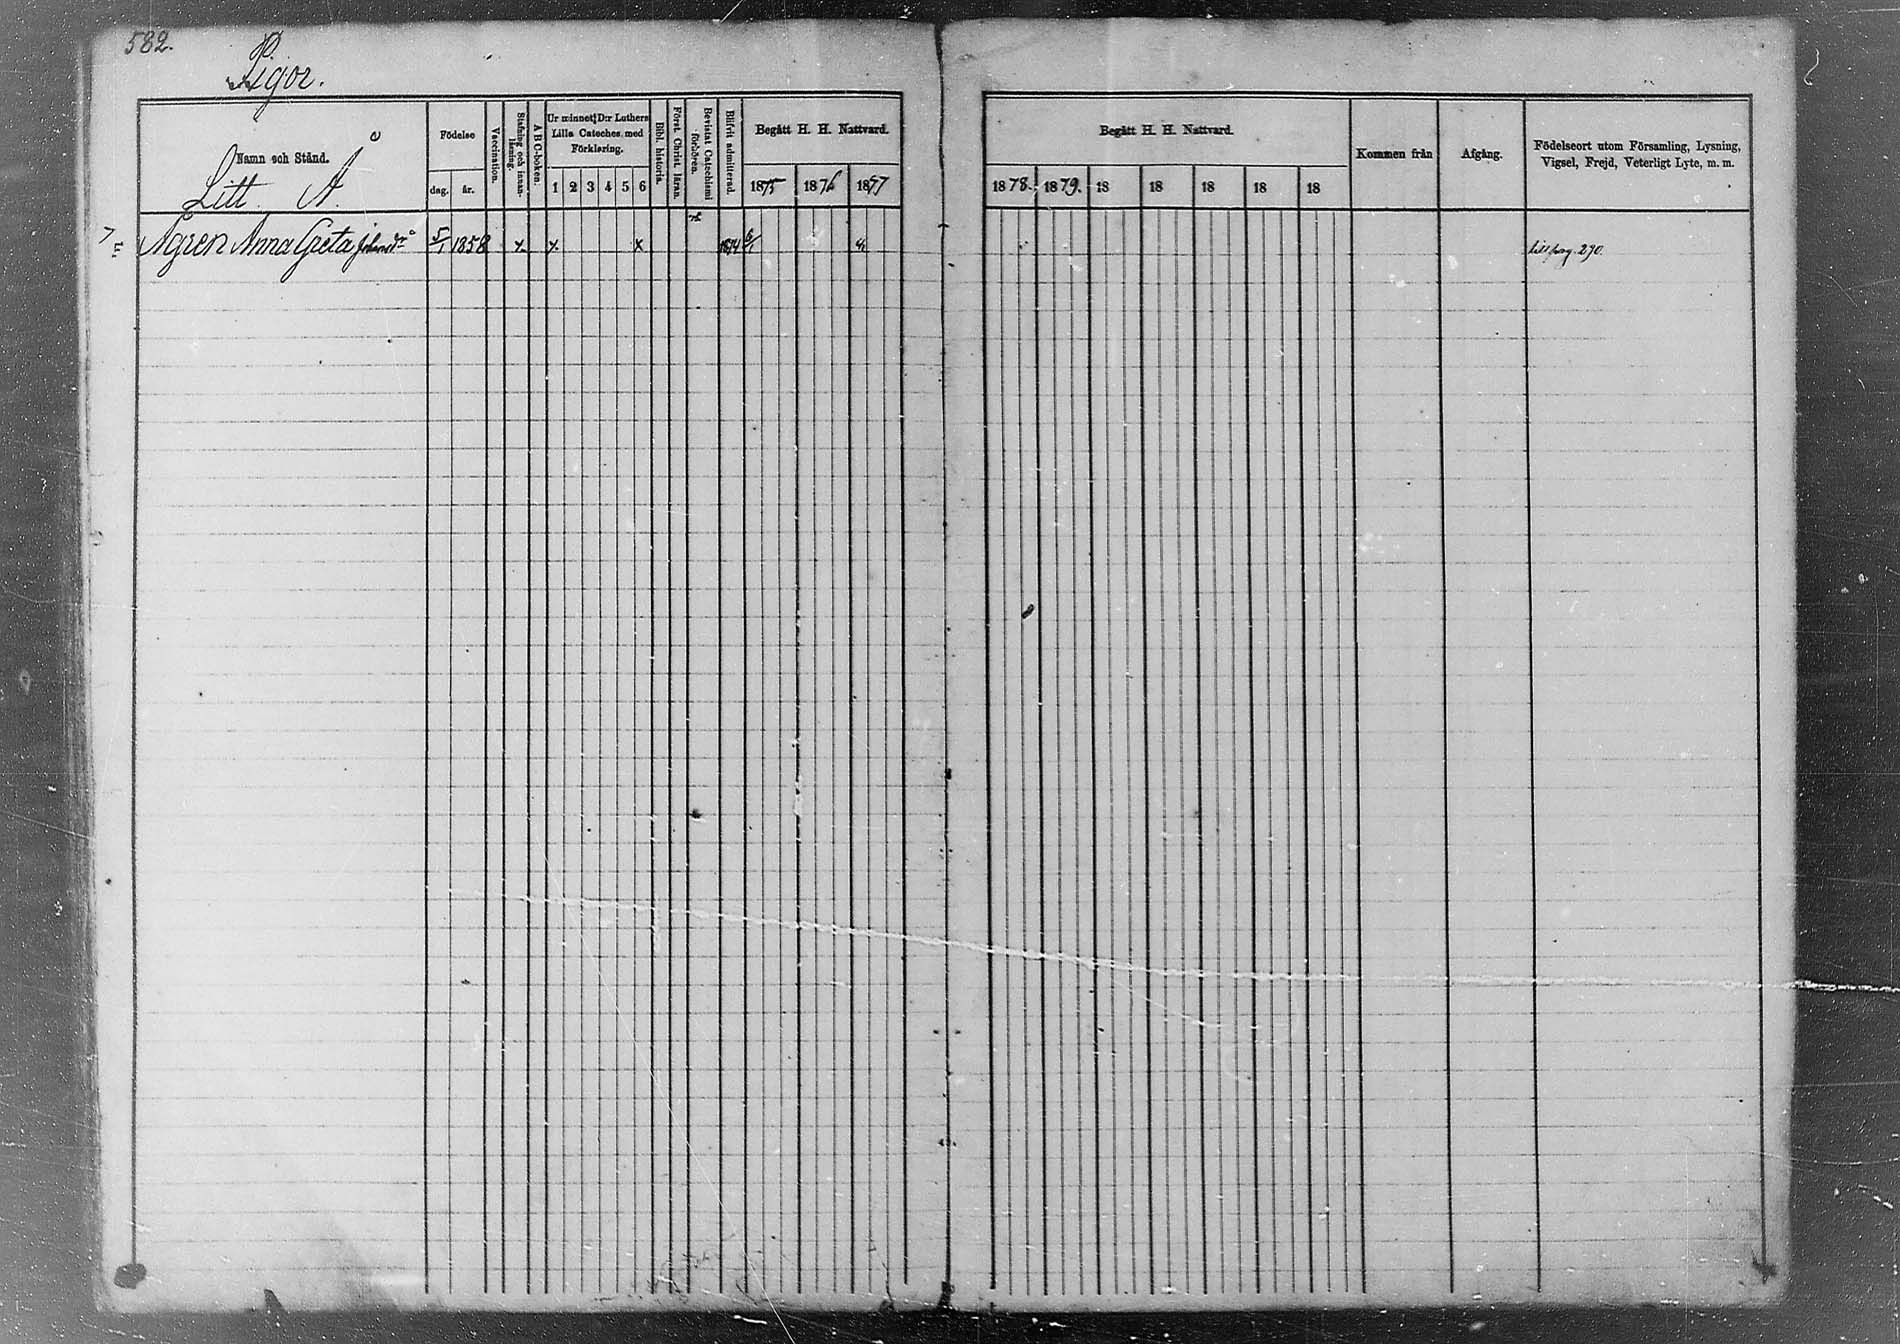 582.
Pigor.
Namn och Stånd.
Litt. Å.
Födelse
dag. år.
Vaccination.
Stafning och innan-läsning.
A B C-boken.
Ur minnet: D:r Luthers
Lilla Cateches. med
Förklaring.
1 2 3 4 5 6
Bibl. historia.
Först. Christ. läran.
Bevistat Catechismi förhören.
Blifvit admitterad.
Begått H. H. Nattvard.
1875 1876 1877
Begått H. H. Nattvard.
1878. 1879. 18 18 18 18 18
Kommen från
Afgång.
Födelseort utom Församling, Lysning,
Vigsel, Frejd, Veterligt Lyte, m. m.
Ågren Anna Greta 5/1 1858 x x x 1874 6/1 till pag. 290.